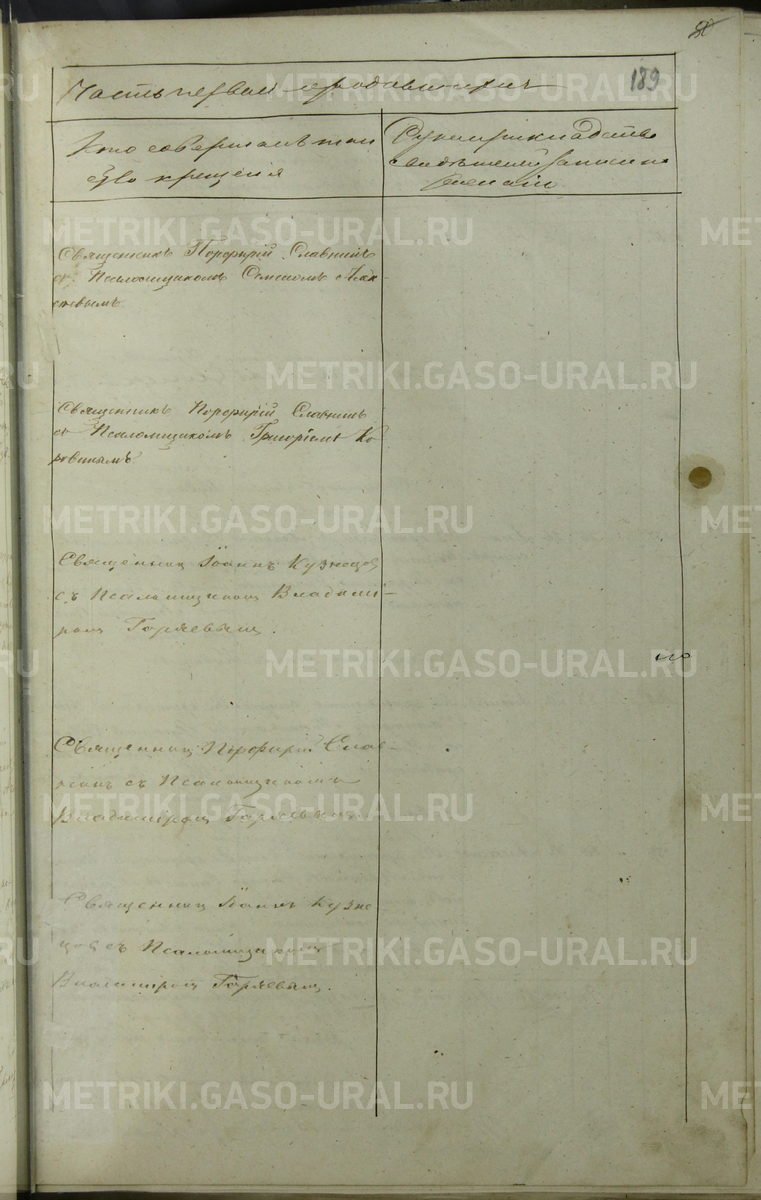 189
Часть первая о родившихся
Кто совершалъ таин
ство крещенія
Рукоприкладство
свидѣтелей записи по
желанію
Священникъ Порфирій Славнинъ
съ Псаломщикомъ
Священникъ Порфирій Славнинъ
съ Псаломщикомъ Григоріемъ Ко
ровинымъ
Священник Іоаннъ Кузнецов
съ Псаломщиком Владими-
ром Горяевым.
Священник Порфирій Слав-
нинъ съ Псаломщикомъ
Владиміром Горяевым.
Священник Іоаннъ Кузне
цов съ Псаломщиком
Владиміром Горяевым.
METRIKI.GASO-URAL.RU